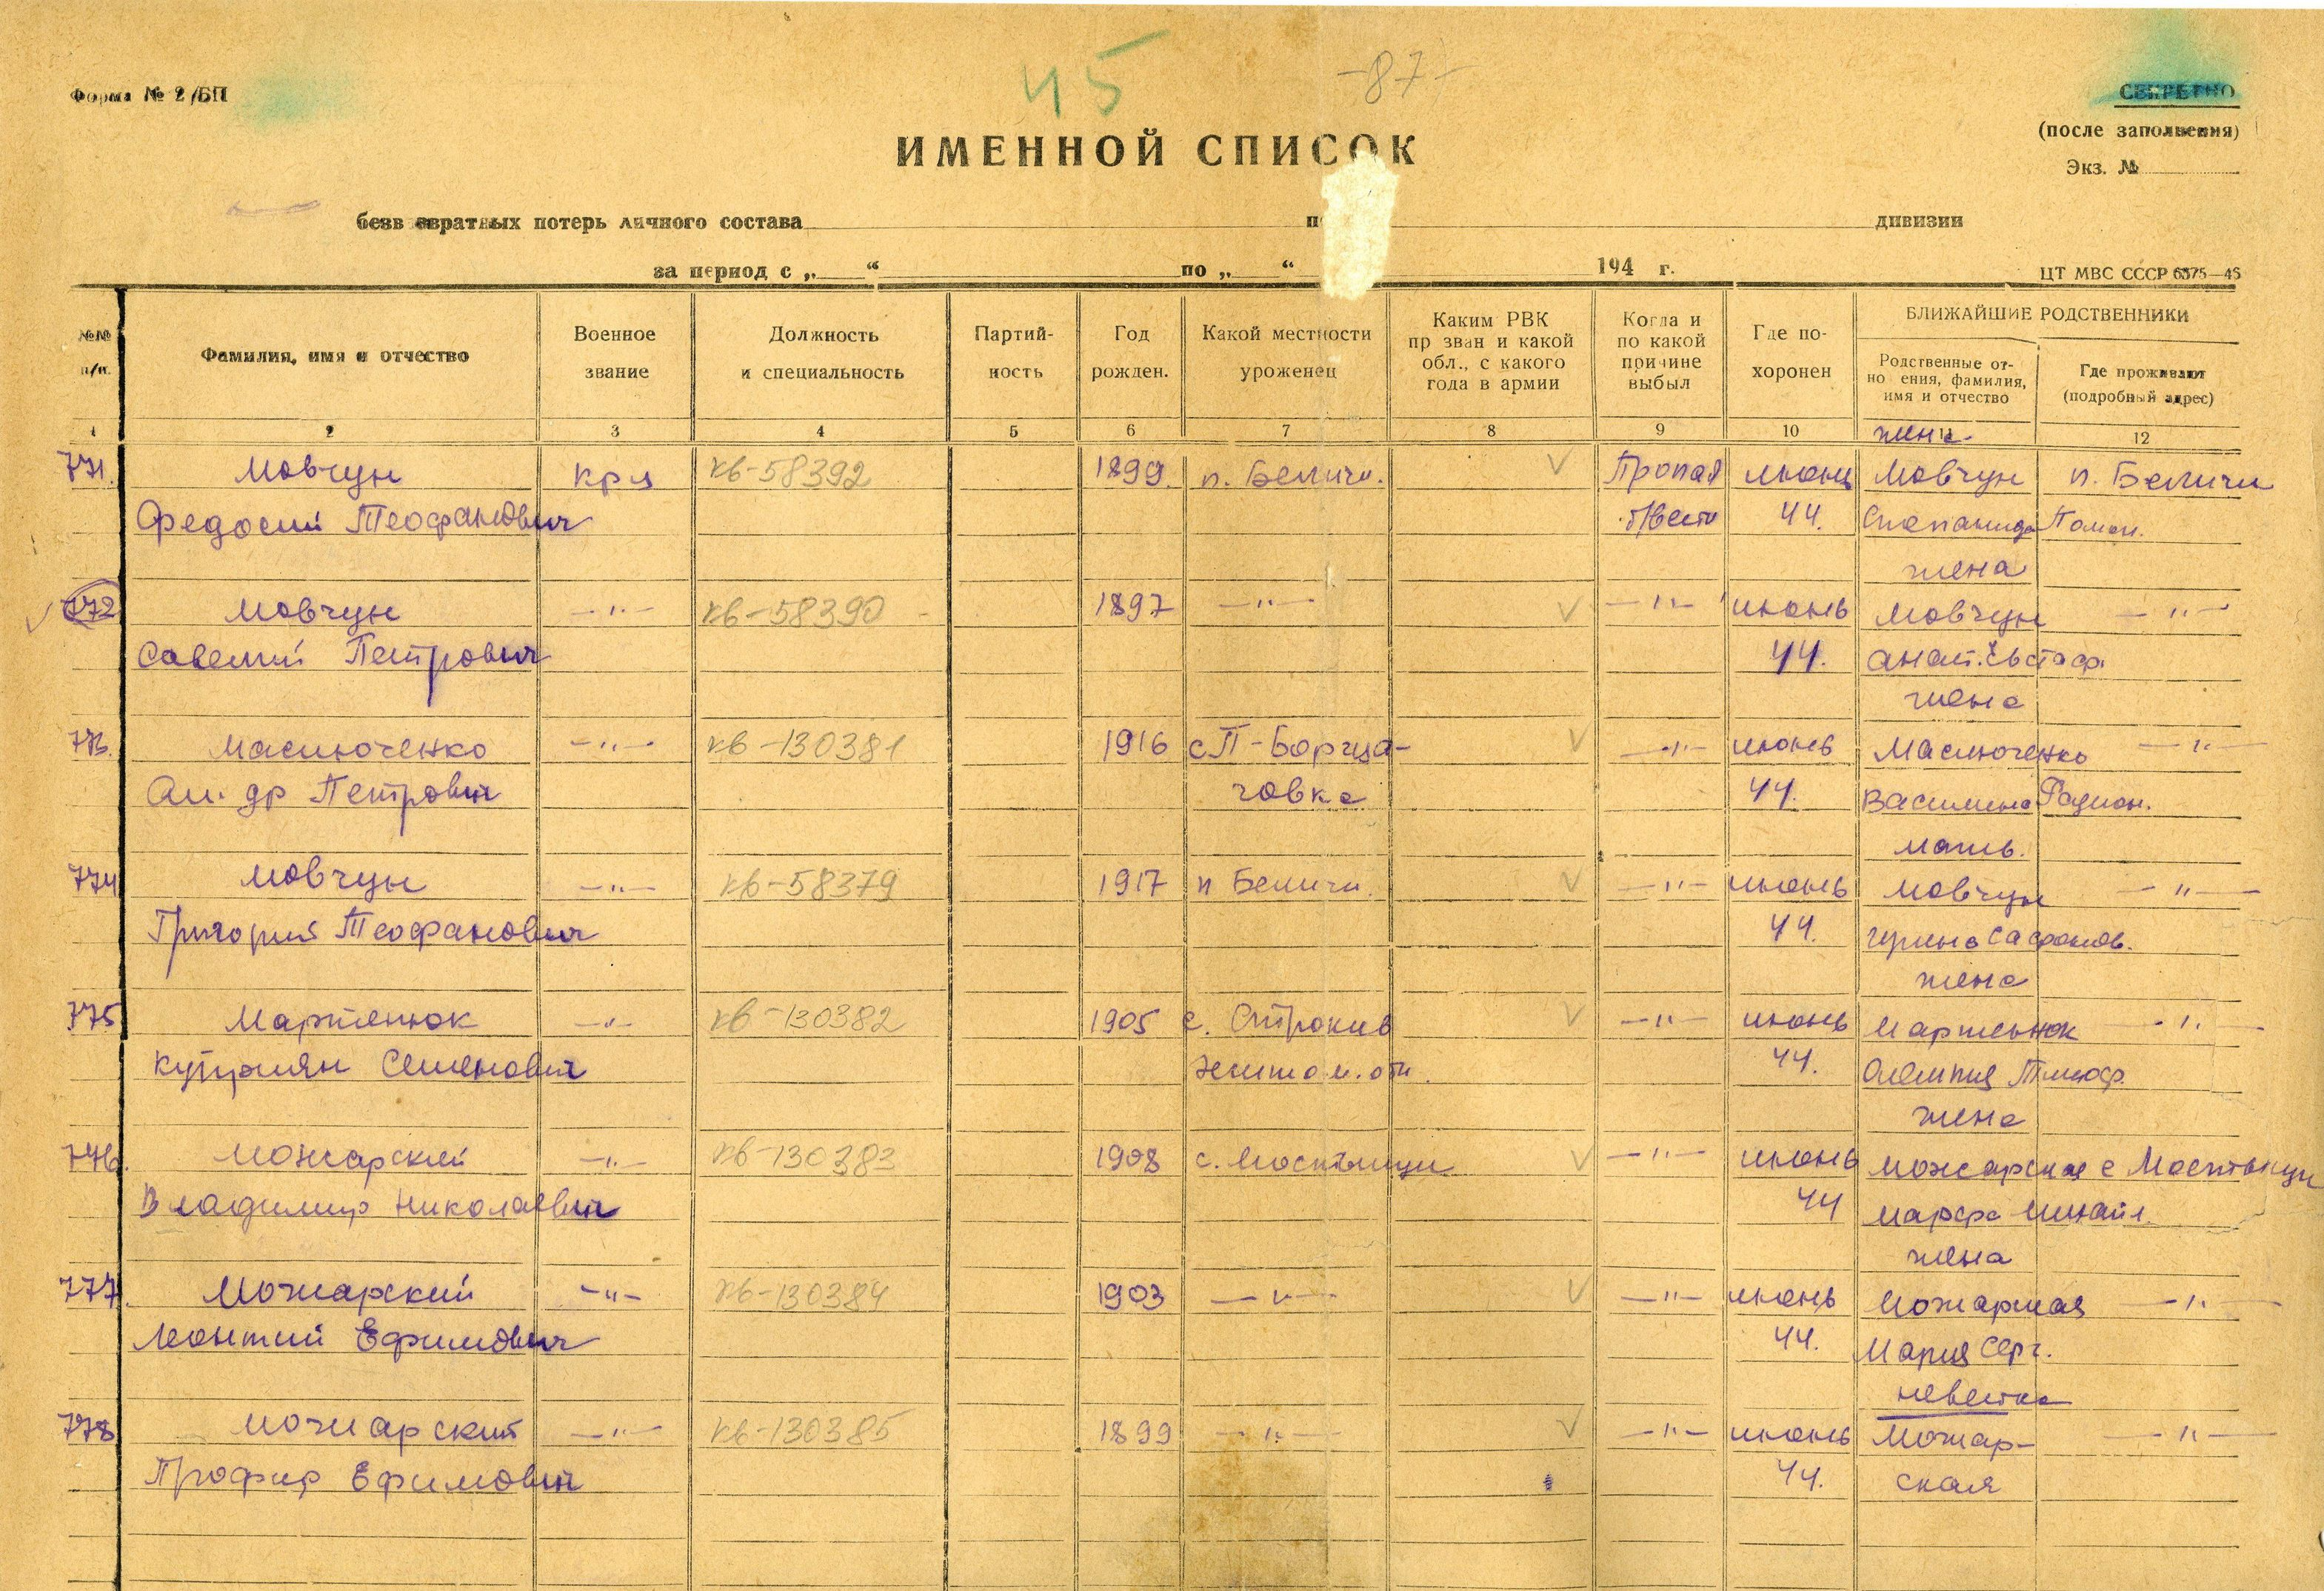 45
-87-
Форма № 2/БП
СЕКРЕТНО
(после заполнения)
Экз. №
ИМЕННОЙ СПИСОК
безвозвратных потерь личного состава по дивизии
за период с „ “ по „ “ 194 г.
ЦТ МВС СССР 6375—45
№№ п/п.
Фамилия, имя и отчество
Военное звание
Должность и специальность
Партий-
ность
Год рожден.
Какой местности уроженец
Каким РВК
пр зван и какой
обл., с какого
года в армии
Когда и
по какой
причине
выбыл
Где по-
хоронен
БЛИЖАЙШИЕ РОДСТВЕННИКИ
Родственные от-
но ения, фамилия,
имя и отчество
Где проживают
(подробный адрес)
1 2 3 4 5 6 7 8 9 10 11 12
жена
771. Мовчун кр-ц кв-58392 1899 п. Беличи. V Пропал июнь Мовчун п. Беличи
Федосий Теофанович б/вести 44. Степанида
жена
772 Мовчун —"— кв-58390 1897 —"— V —"— июнь Мовчун —"—
Савелий Петрович 44. Анат. Евстаф.
жена
773. Маслюченко —"— кв-130381 1916 с П-Борща- V —"— июнь Маслюченко —"—
Ал-др Петрович говка 44. Василина Радион.
мать.
774 Мовчун —"— кв-58379 1917 п Беличи. V —"— июнь Мовчун —"—
Григорий Теофанович 44. Сафонов.
жена
775 Мартенюк —"— кв-130382 1905 с. V —"— июнь Мартенюк —"—
Куприян Семенович Житом. обл. 44. Олемпия Тимоф.
жена
776. Можарский —"— кв-130383 1908 с. Мостыщи V —"— июнь Можарская с Мостыщи
Владимир Николаевич 44 Марфа Михайл.
жена
777. Можарский —"— кв-130384 1903 —"— V —"— июнь Можарская —"—
Леонтий Ефимович 44. Мария Серг.
невестка
778 Можарский —"— кв-130385 1899 —"— V —"— июнь Можар- —"—
Профир Ефимович 44. ская